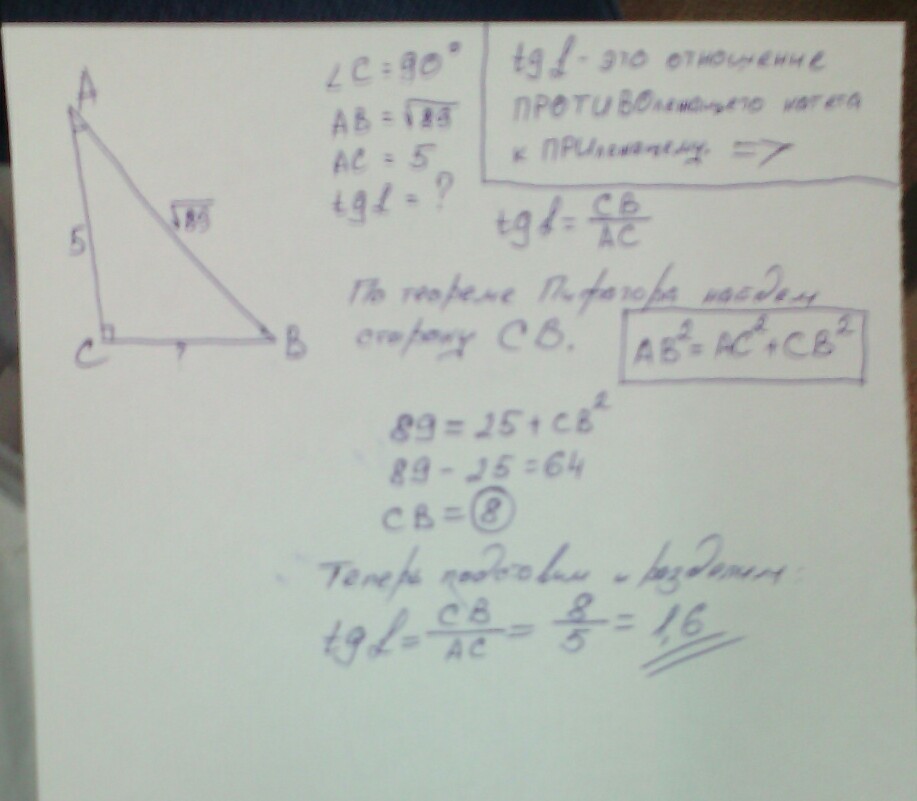 A
5
√89
C
?
B
∠C = 90°
AB = √89
AC = 5
tg α = ?
tg α - это отношение
ПРОТИВОлежащего катета
к ПРИлежащему. =>
tg α = CB/AC
По теореме Пифагора найдем
сторону CB.
AB² = AC² + CB²
89 = 25 + CB²
89 - 25 = 64
CB = 8
Теперь подставим и разделим:
tg α = CB/AC = 8/5 = 1,6